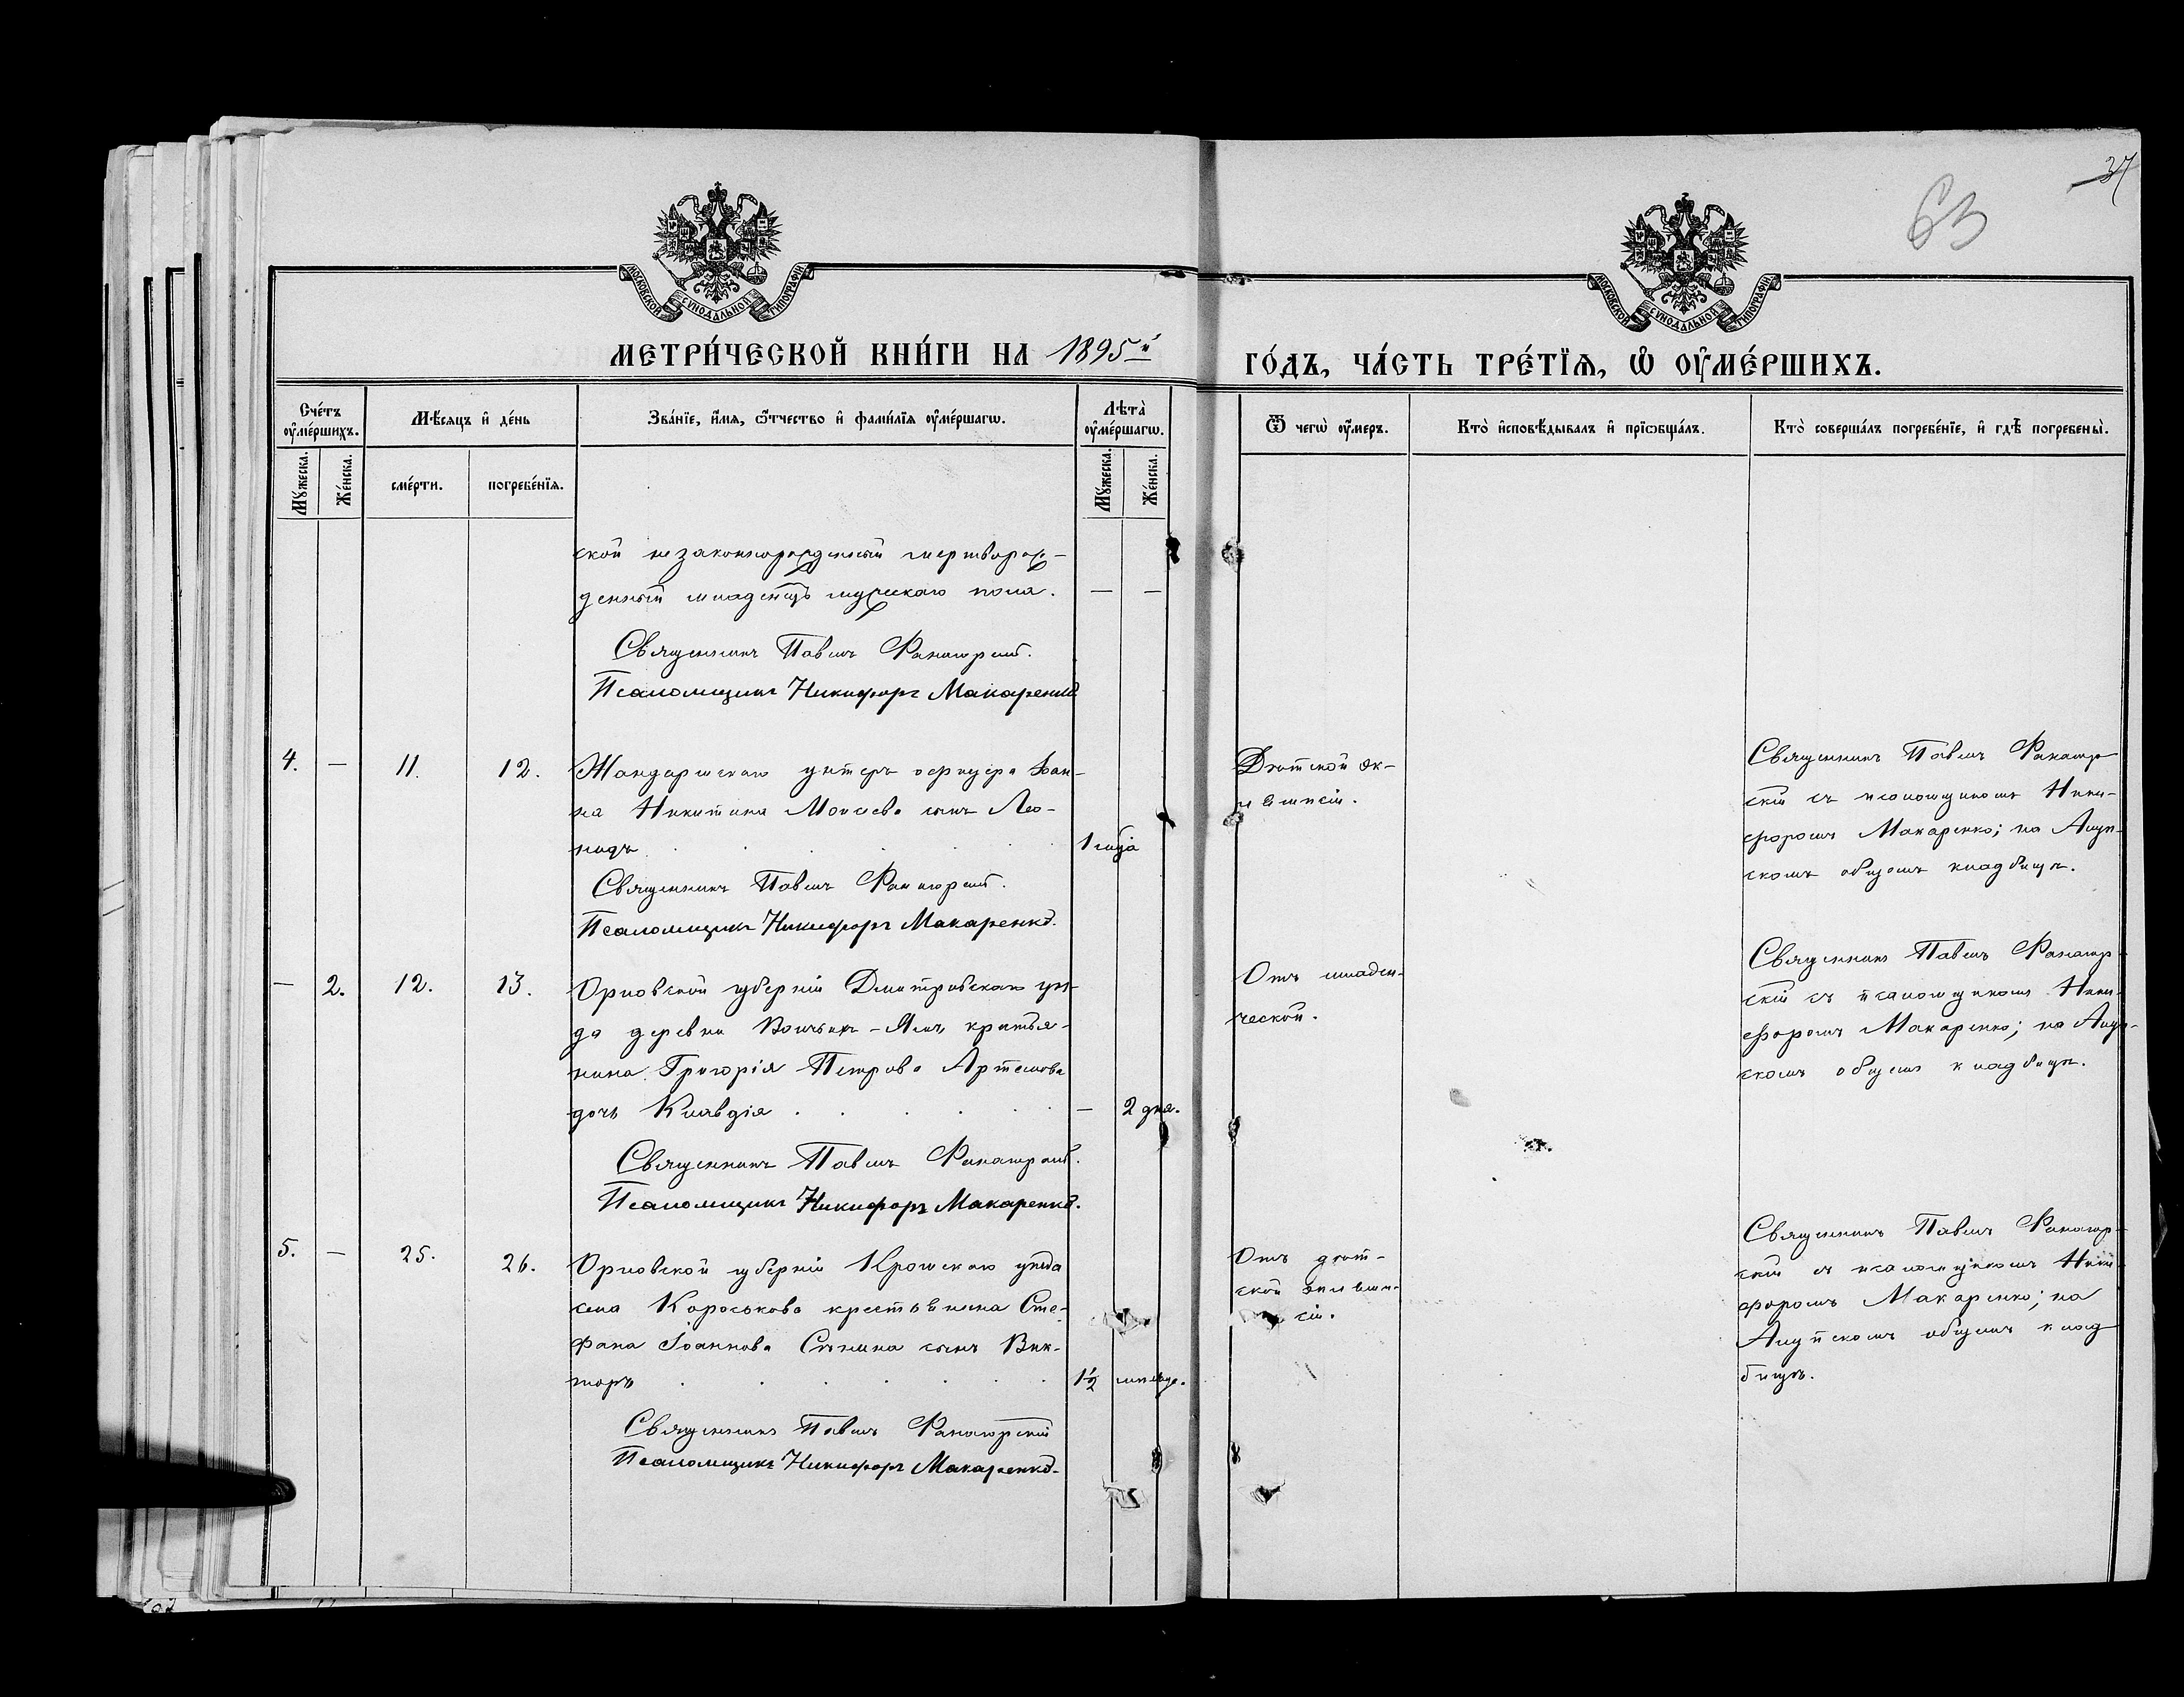 37
63
МОСКОВСКОЙ СѴНОДАЛЬНОЙ ТИПОГРАФІИ
МОСКОВСКОЙ СѴНОДАЛЬНОЙ ТИПОГРАФІИ
МЕТРИ́ЧЕСКОЙ КНИ́ГИ НА 1895й
ГО́ДЪ, ЧА́СТЬ ТРЕ́ТЇѦ, Ѡ҆ ОУ҆МЕ́РШИХЪ.
Сче́тъ оу҆ме́ршихъ.
Мѣ́сѧцъ и҆ де́нь
Зва́нїе, и҆́мѧ, ѻ҆́тчество и҆ фами́лїѧ оу҆ме́ршагѡ.
Лѣ́та оу҆ме́ршагѡ.
Ѿ чегѡ̀ оу҆́меръ.
Кто̀ и҆сповѣ́дывалъ и҆ прїѡбща́лъ.
Кто̀ соверша́лъ погребе́нїе, и҆ гдѣ̀ погребены̀.
Мꙋ́жеска.
Же́нска.
сме́рти.
погребе́нїѧ.
Мꙋ́жеска.
Же́нска.
ской незаконнорожденный мертворож-
денный младенецъ мужескаго пола. — —
Священникъ Павелъ Фанагорскій.
Псаломщикъ Никифоръ Макаренко
4. — 11. 12. Жандармскаго унтеръ офицера Іоан-
на Никитина Моисеева сынъ Лео-
нидъ 1 года
Священникъ Павелъ Фанагорскій.
Псаломщикъ Никифоръ Макаренко.
Дѣтской эк-
лямпсіи.
Священникъ Павелъ Фанагор-
скій съ псаломщикомъ Ники-
форомъ Макаренко; на Аут-
скомъ общемъ кладбищѣ.
— 2. 12. 13. Орловской губерніи Дмитровскаго уѣз-
да деревни Волчьихъ-Ямъ крестья-
нина Григорія Петрова Артемова
дочь Клавдія — 2 дня.
Священникъ Павелъ Фанагорскій.
Псаломщикъ Никифоръ Макаренко.
Отъ младен-
ческой.
Священникъ Павелъ Фанагор-
скій съ псаломщикомъ Ники-
форомъ Макаренко; на Аут-
скомъ общемъ кладбищѣ.
5. — 25. 26. Орловской губерніи Кромскаго уѣзда
села Короськова крестьянина Сте-
фана Іоаннова Сѣнина сынъ Вик-
торъ 1½ мѣсяца.
Священникъ Павелъ Фанагорскій
Псаломщикъ Никифоръ Макаренко.
Отъ дѣт-
ской эклямп-
сіи.
Священникъ Павелъ Фанагор-
скій съ псаломщикомъ Ники-
форомъ Макаренко; на
Аутскомъ общемъ клад-
бищѣ.